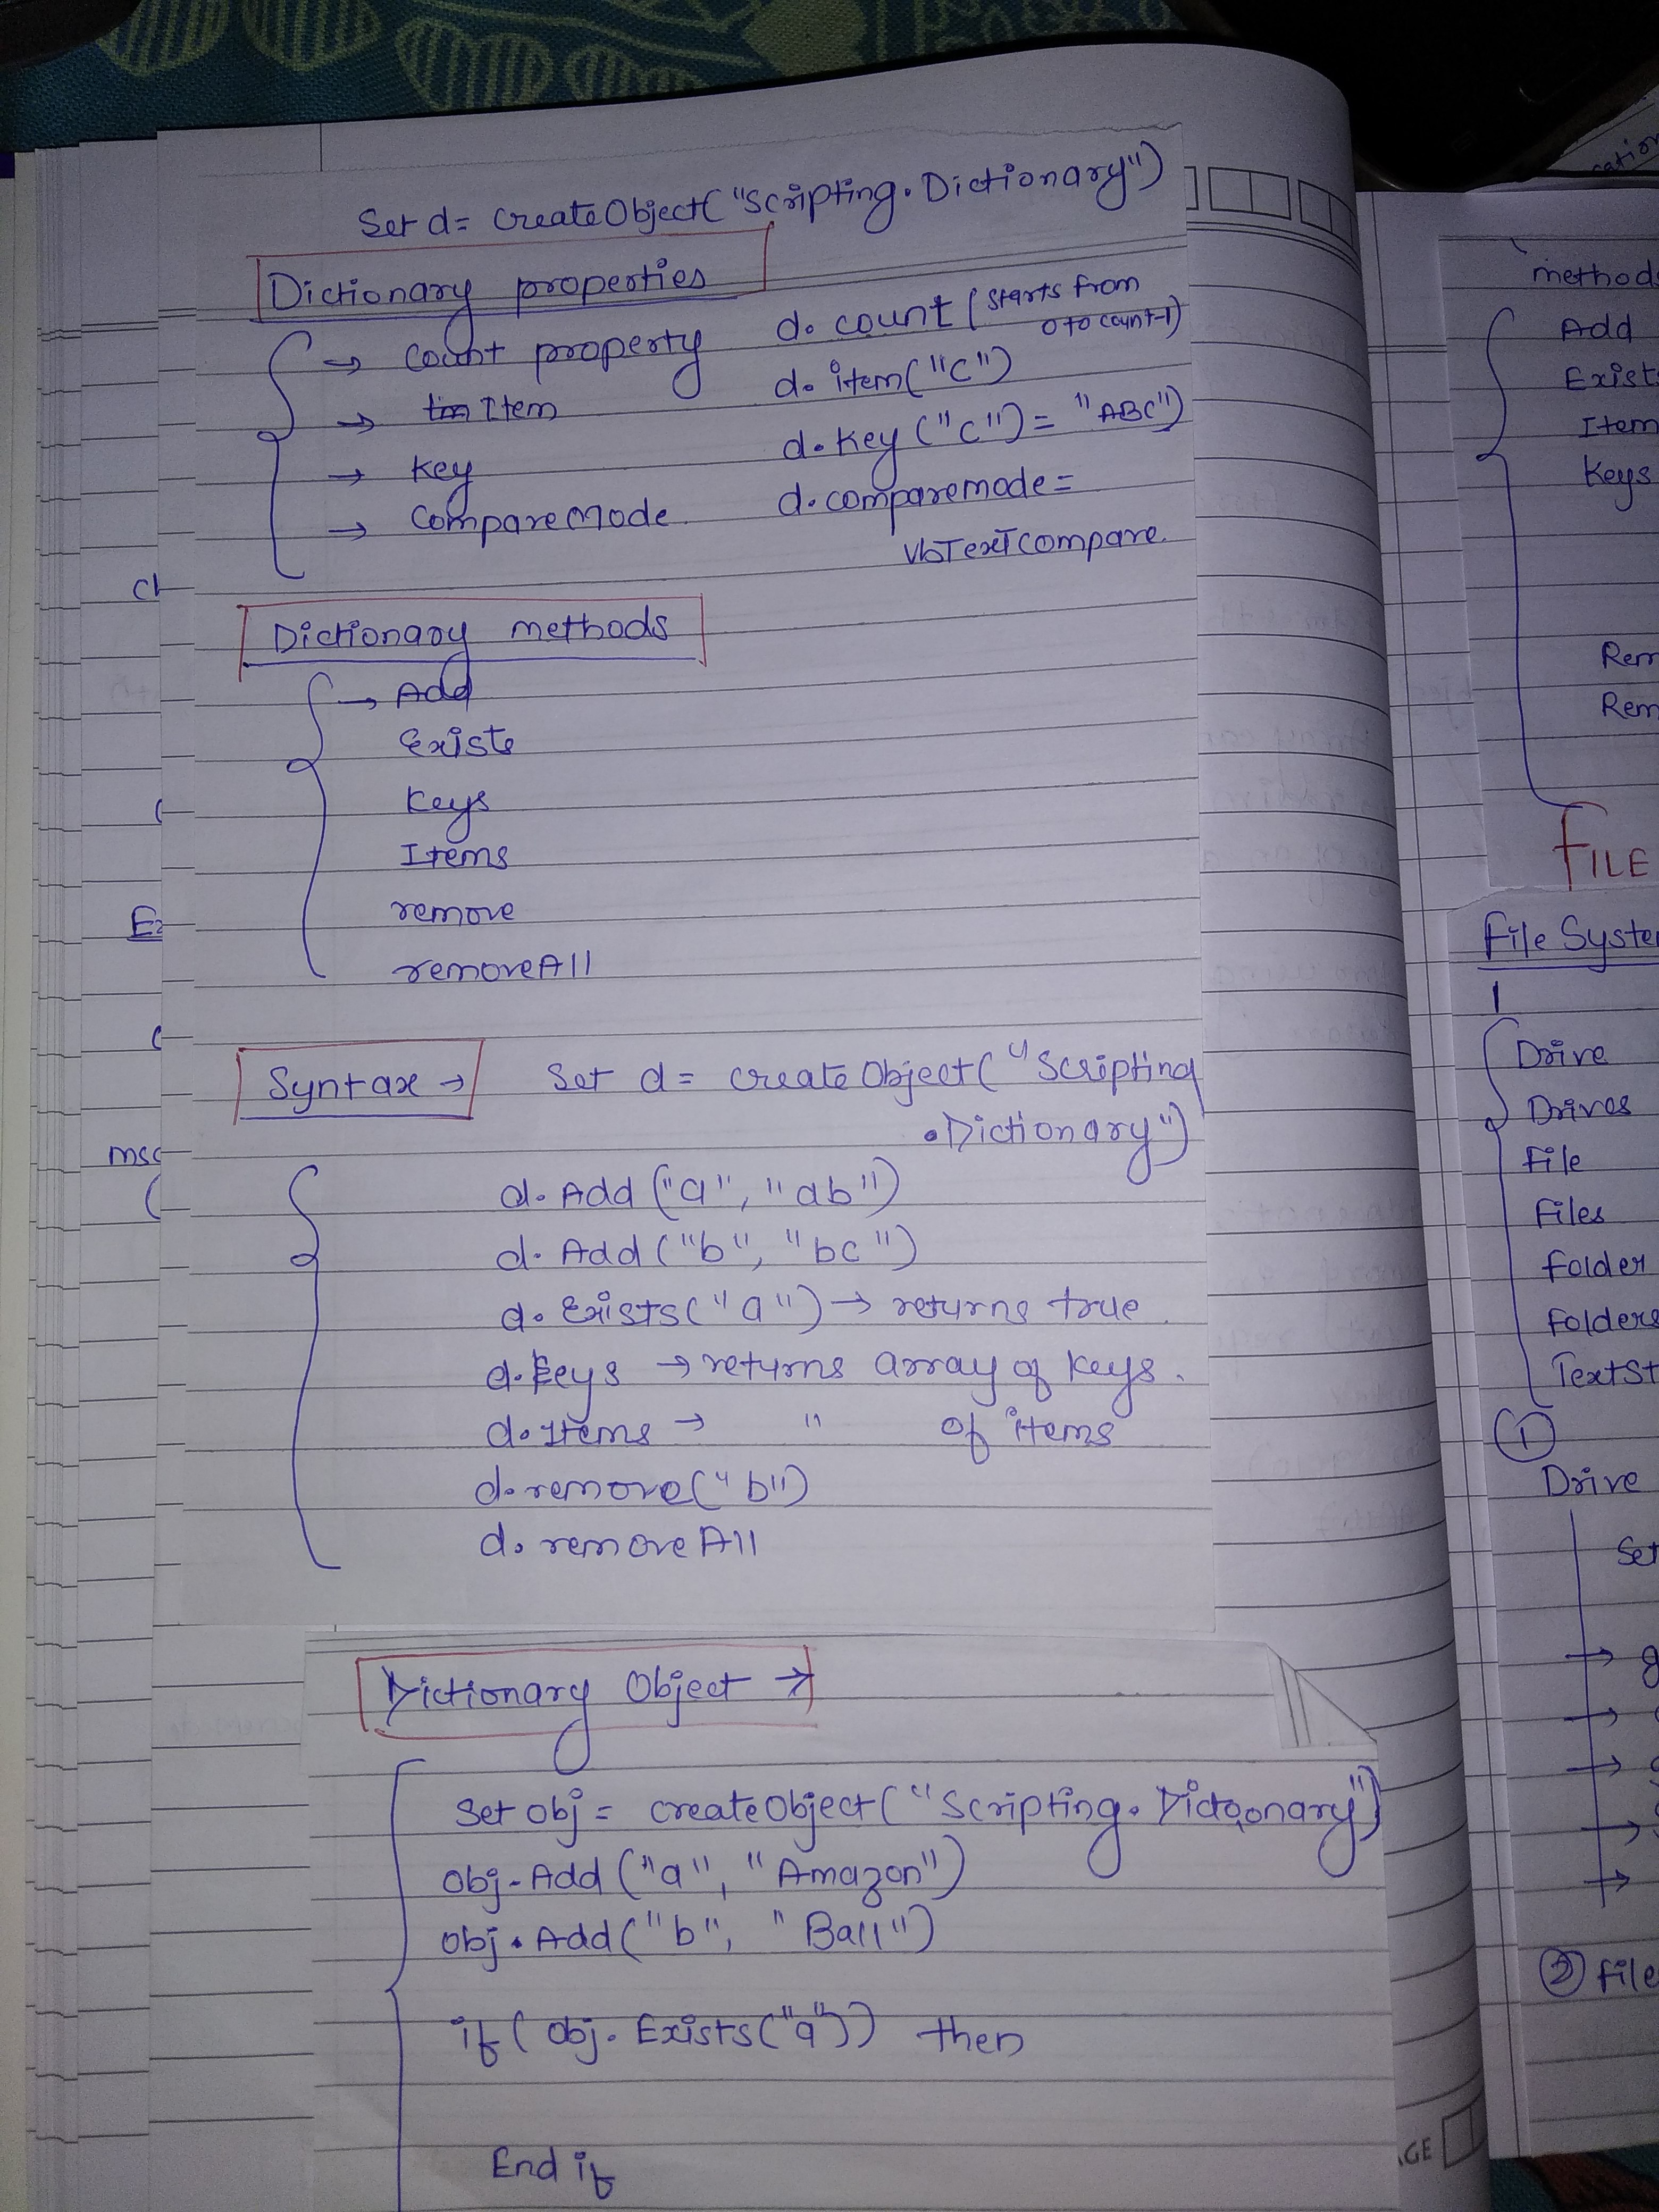 Set d = createObject("Scripting.Dictionary")
Dictionary properties
→ Count property d.count (starts from
0 to count-1)
→ Item d.item("C")
→ Key d.Key("C") = "ABC")
→ CompareMode d.comparemode =
VbTextCompare.
Dictionary methods
→ Add
Exists
Keys
Items
remove
removeAll
Syntax → Set d = createObject("Scripting
.Dictionary")
d.Add("a", "ab")
d.Add("b", "bc")
d.Exists("a") → returns true
d.Keys → returns array of keys.
d.Items → " of items
d.remove("b")
d.removeAll
Dictionary Object →
Set obj = createObject("Scripting.Dictoonary")
obj.Add("a", "Amazon")
obj.Add("b", "Ball")
if(obj.Exists("a")) then
End if
methods
Add
Exist
Item
Keys
Rem
Rem
FILE
File System
Drive
Drives
File
Files
Folder
Folders
TextSt
①
Drive
Set
② File
msg
GE